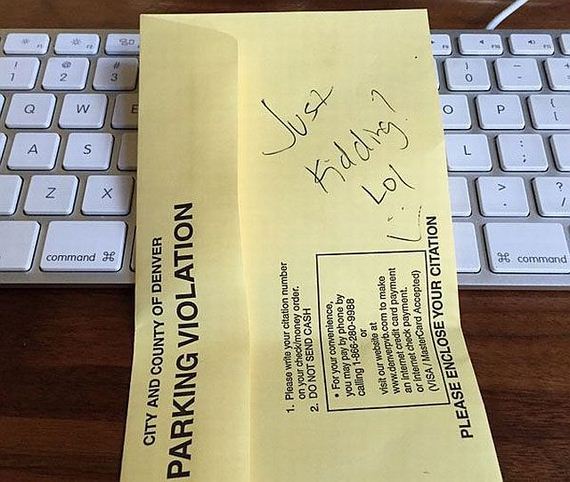 CITY AND COUNTY OF DENVER
PARKING VIOLATION
Just
Kidding?
Lol
1. Please write your citation number
on your check/money order.
2. DO NOT SEND CASH
• For your convenience,
you may pay by phone by
calling 1-866-280-9988
or
visit our website at
www.denverpvb.com to make
an internet credit card payment
or internet check payment.
(VISA / MasterCard Accepted)
PLEASE ENCLOSE YOUR CITATION
! @ #
1 2 3
Q W E
A S
Z X
command ⌘
) _
0 -
O P {
[
L : "
; '
> ?
. /
⌘ command